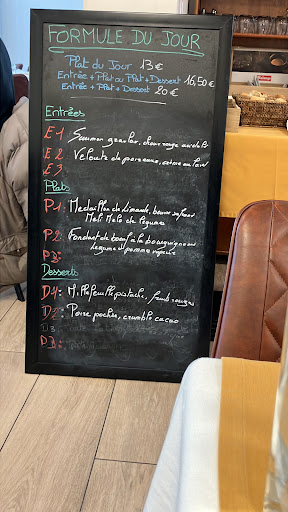 FORMULE DU JOUR
Plat du Jour 13€
Entrée + Plat ou Plat + Dessert 16,50€
Entrée + Plat + Dessert 20€
Entrées
E1: Saumon gravlax, choux rouge
E2: Velouté de panais,
E3:
Plats
P1: Médaillon de Limande, beurre safran
Méli Mélo de légumes
P2: Fondant de boeuf à la bourguignonne
Légumes pomme vapeur
P3:
Desserts
D1: Millefeuille pistache, fruits rouges
D2: Poire pochée, crumble cacao
D3: